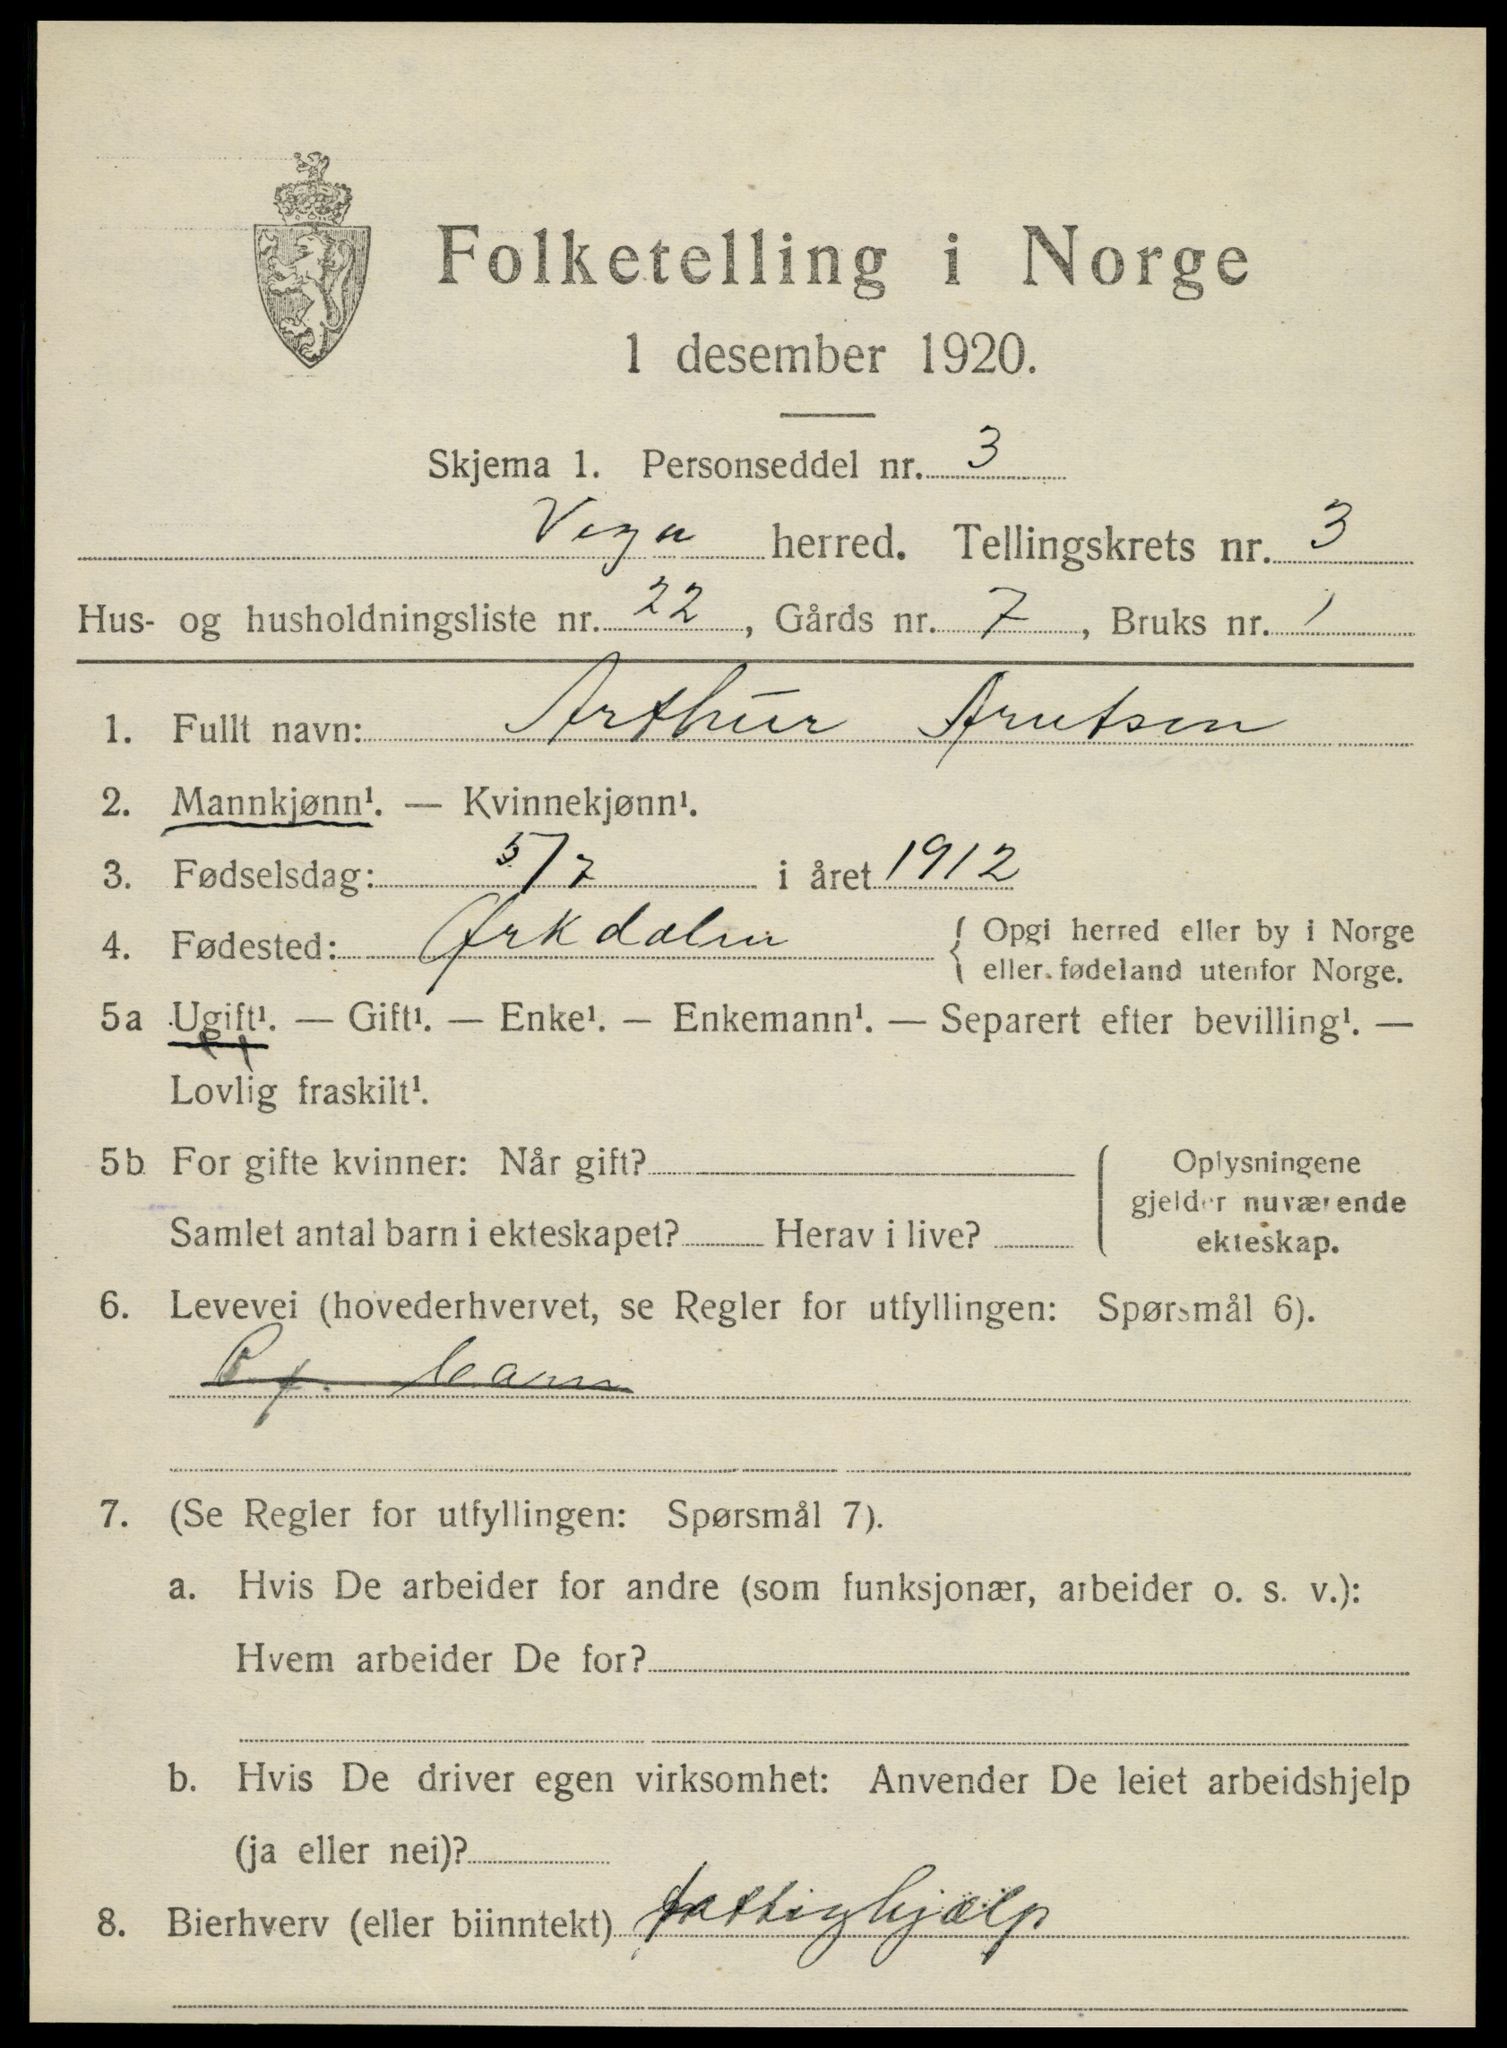 Folketelling i Norge
1 desember 1920.
Skjema 1. Personseddel nr. 3
Vega herred. Tellingskrets nr. 3
Hus- og husholdningsliste nr. 22, Gårds nr. 7, Bruks nr. 1
1. Fullt navn: Arthur Arntsen
2. Mannkjønn¹. — Kvinnekjønn¹.
3. Fødselsdag: 5/7 i året 1912
4. Fødested: Ørkdalen { Opgi herred eller by i Norge
eller fødeland utenfor Norge.
5a Ugift¹. — Gift¹. — Enke¹. — Enkemann¹. — Separert efter bevilling¹. —
Lovlig fraskilt¹.
5b For gifte kvinner: Når gift?
Samlet antal barn i ekteskapet? Herav i live?
Oplysningene
gjelder nuværende
ekteskap.
6. Levevei (hovederhvervet, se Regler for utfyllingen: Spørsmål 6).
7. (Se Regler for utfyllingen: Spørsmål 7).
a. Hvis De arbeider for andre (som funksjonær, arbeider o. s. v.):
Hvem arbeider De for?
b. Hvis De driver egen virksomhet: Anvender De leiet arbeidshjelp
(ja eller nei)?
8. Bierhverv (eller biinntekt) fattighjælp